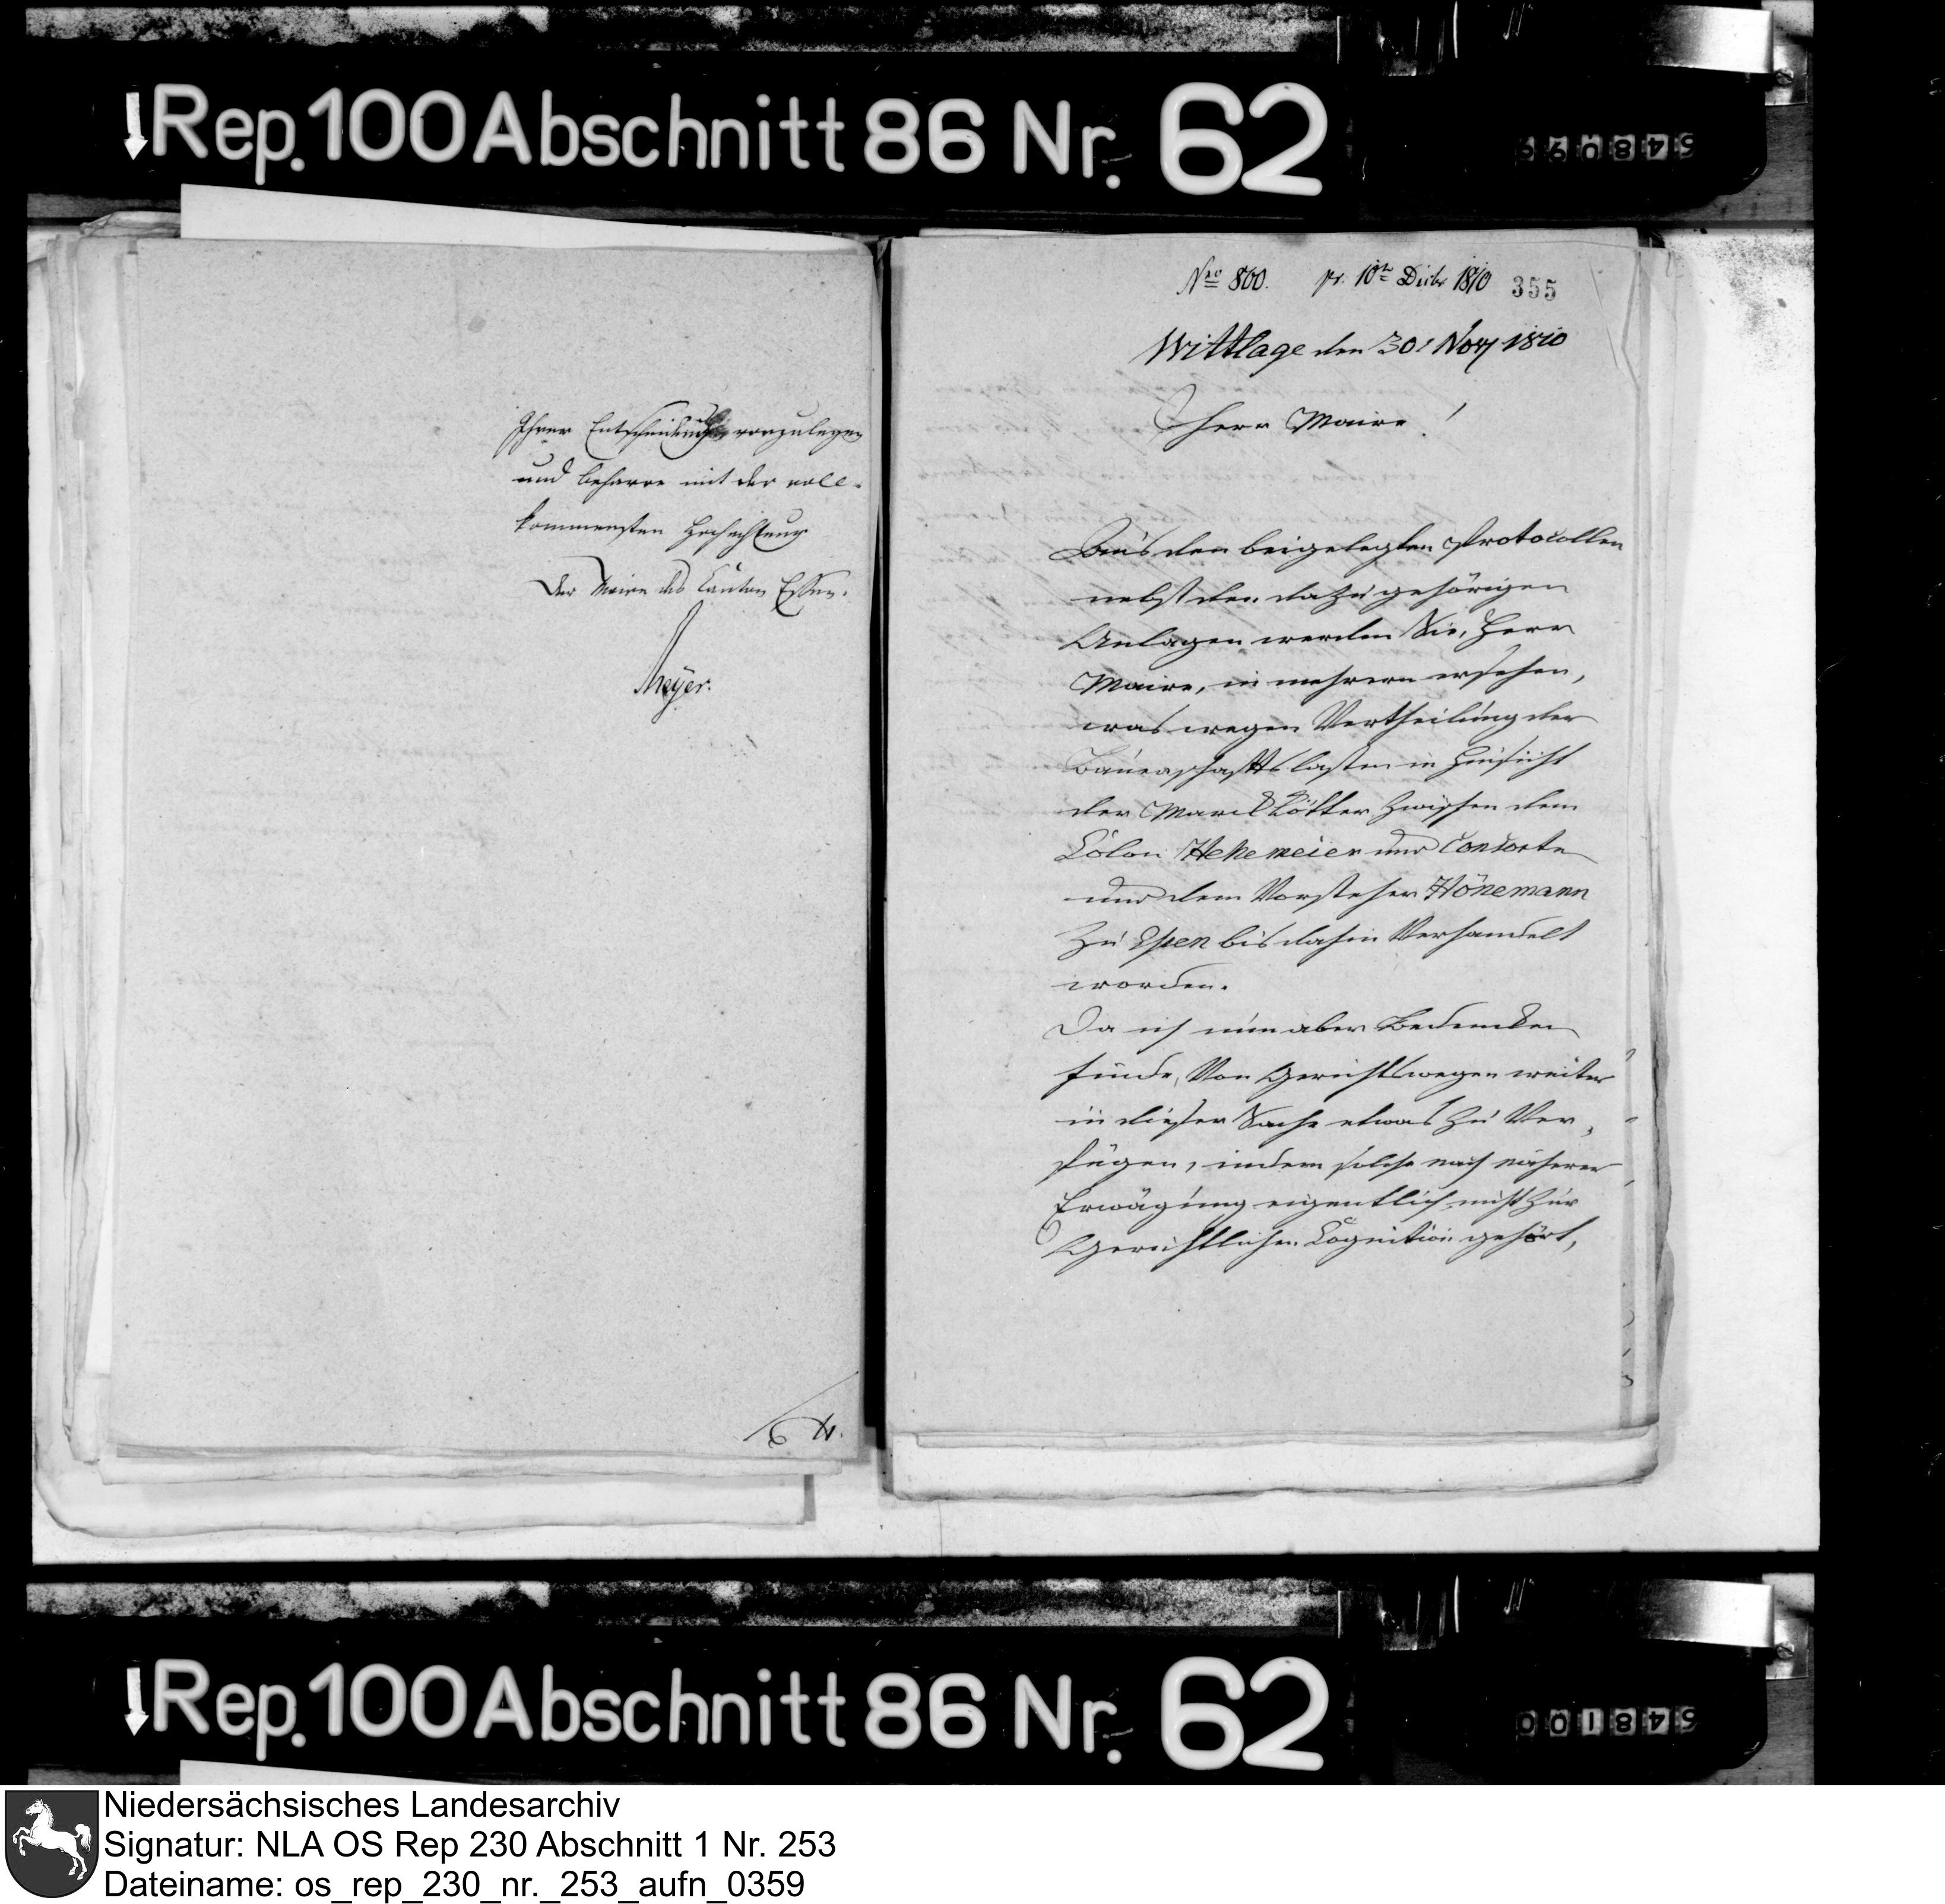 Rep. 100 Abschnitt 86 Nr. 62
Ihrer Entscheidung vorzulegen
und beharre mit der voll-
kommensten Hochachtung
Der Maire des Canton Essen.
Meÿer.
Nro 800. pr. 10ten Decbr 1810 355
Wittlage den 30t Nov 1810
Herr Maire!
Aus den beigelegten Protocollen
nebst den dazu gehörigen
Anlagen werden Sie, Herr
Maire, in mehrern ersehen,
was wegen Vertheilung der
Bauerschaftslasten in Hinsicht
der Marckkötter zwischen dem
Colon Hekemeier und Consorten
und dem Vorsteher Hönemann
zu Essen bis dahin Verhandelt
worden.
Da ich nun aber Bedencken
finde, Von Gerichtswegen weiter
in dieser Sache etwas zu Ver-
fügen, indem solche nach näherer
Erwägung eigentlich nicht zur
Gerichtlichen Cognition gehört,
Rep. 100 Abschnitt 86 Nr. 62
001845
Niedersächsisches Landesarchiv
Signatur: NLA OS Rep 230 Abschnitt 1 Nr. 253
Dateiname: os_rep_230_nr._253_aufn_0359